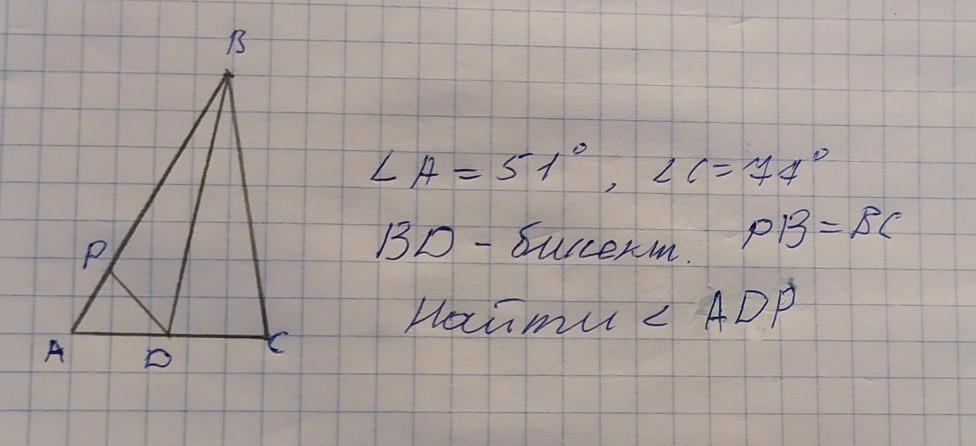 B
P
A D C
∠A = 51°, ∠C = 77°
BD - биссект. PB = BC
Найти < ADP